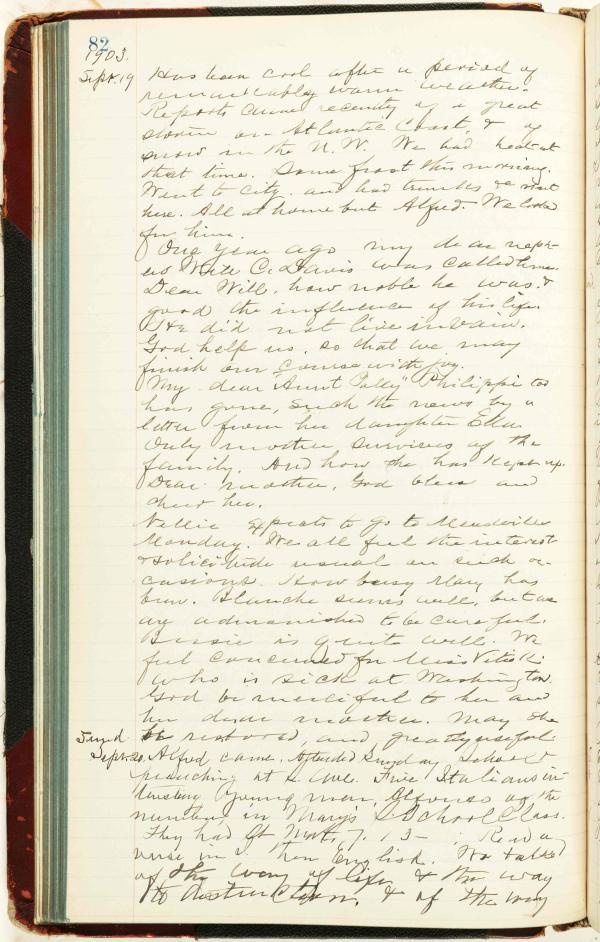 82
1903.
Sept. 19
Has been cool after a period of
remarkably warm weather.
Reports came recently of a great
storm on Atlantic Coast, & of
snow in the N. W. We had heat at
that time. Some frost this morning.
Went to city. and had trunks
here. All at home but Alfred. We looked
for him.
One year ago my dear neph-
ew Will C. Davis was called home.
Dear Will, how noble he was. &
good the influence of his life.
He did not live in vain.
God help us, so that we may
finish our course with joy.
My dear "Aunt Polly" Philippi too
has gone, such the news by a
letter from her daughter Ella.
Only mother survives of the
family. And how she has kept up.
Dear mother, God bless and
cheer her.
Nellie expects to go to Meadville
Monday. We all feel the interest
& solicitude usual on such oc-
casions. How busy Mary has
been. Blanche seems well, but we
are admonished to be careful.
Bessie is quite well. We
feel concerned for Miss
who is sick at Washington.
God be merciful to her and
her dear mother. May she
be restored, and greatly useful.
Sund.
Sept. 20. Alfred came, attended Sunday School &
preaching at L. Ave. Five Italians in-
teresting young men, Alfonso of the
number, in Mary's S School Class.
They had Matt. 7. 13- ; Read a
verse in I. then English. We talked
of the way of life & the way
to destruction, & of the way